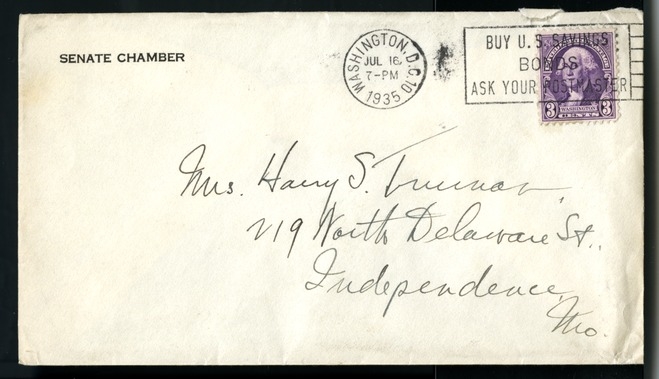 SENATE CHAMBER
WASHINGTON, D.C. 10
JUL 16
7-PM
1935
BUY U.S. SAVINGS
BONDS
ASK YOUR POSTMASTER
3 WASHINGTON 3
CENTS
Mrs. Harry S. Truman,
219 North Delaware St.,
Independence,
Mo.